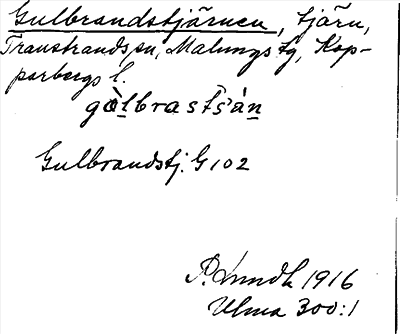 Gulbrandstjärnen, tjärn,
Transtrands sn, Malungs tg, Kop-
parbergs l.
Gulbrandstj. G 102
P. Lundh 1916
Ulma 300:1